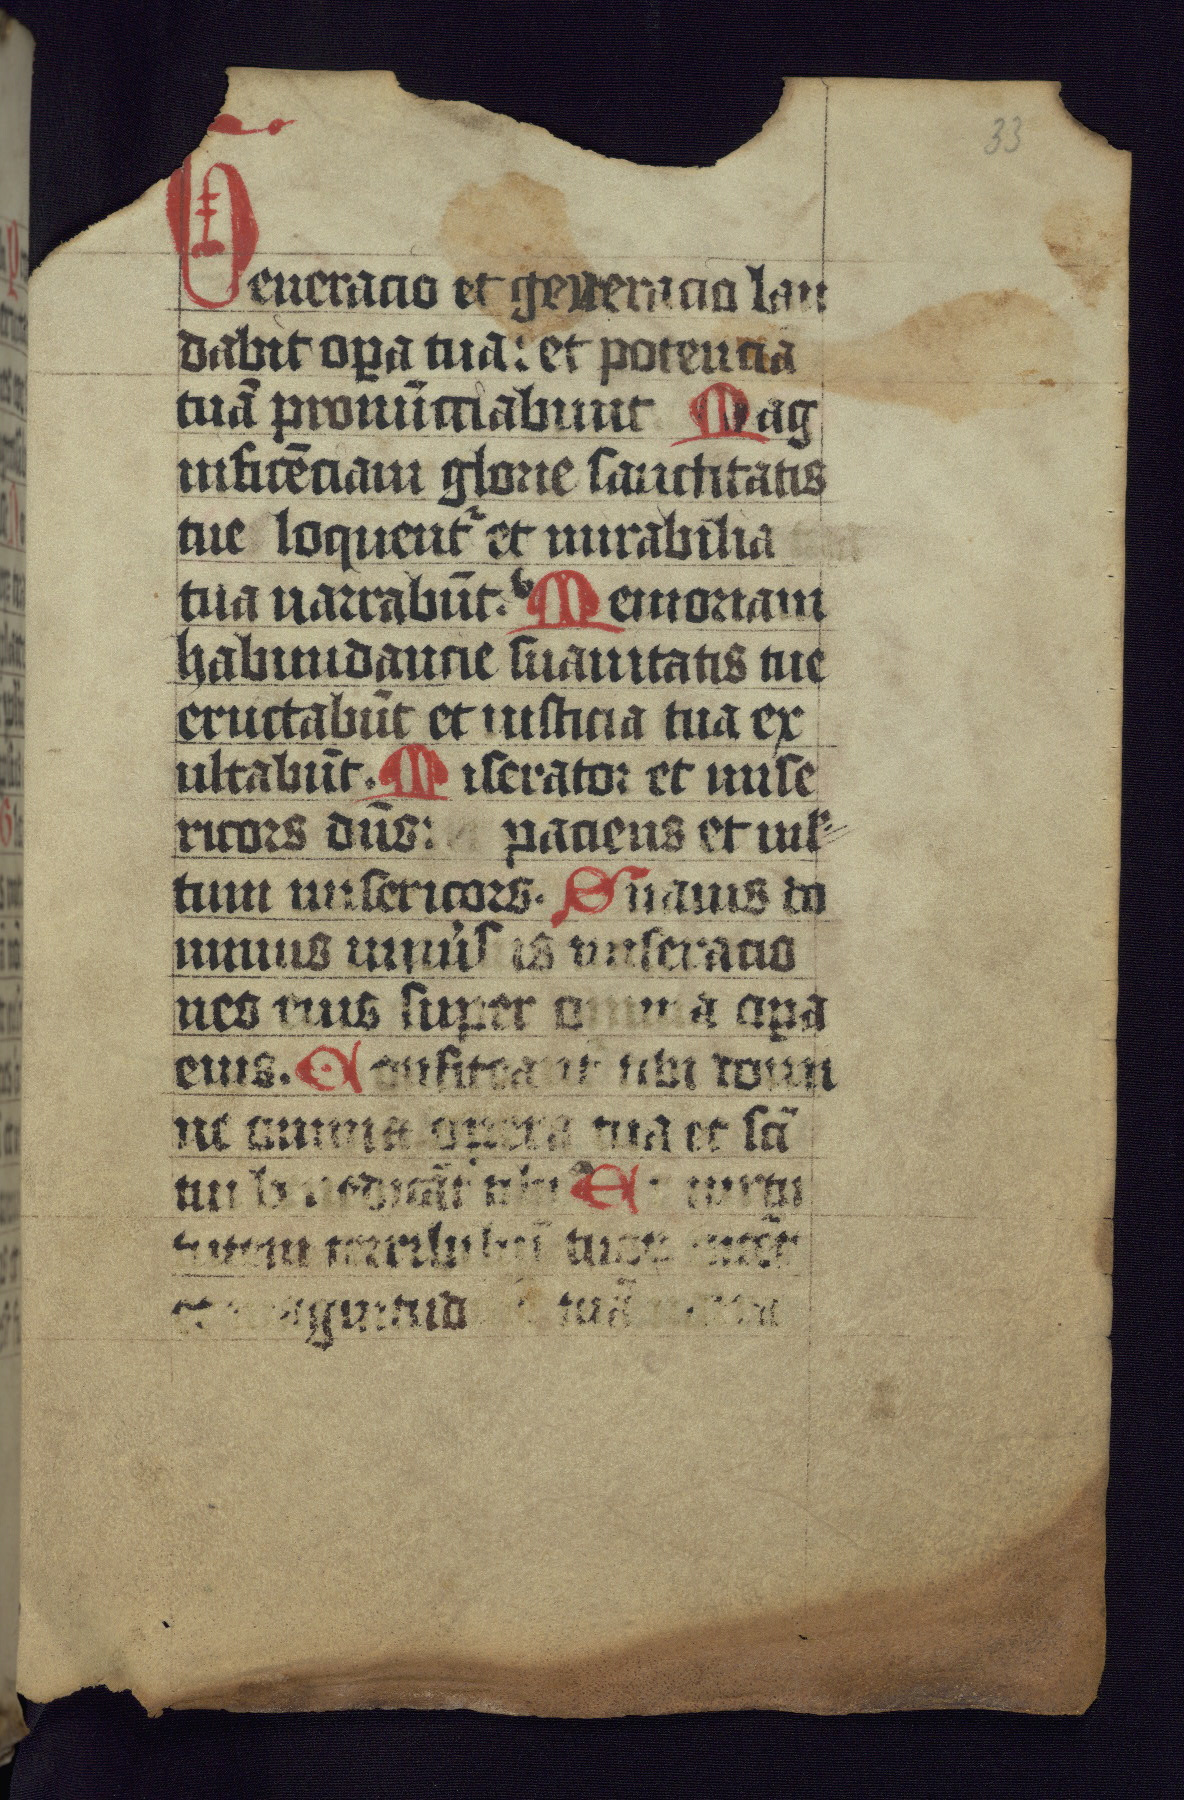 33
Generacio et generacio lau
dabit opa tua: et potencia
tuā pronūcciabunt Mag
nificēciam glorie sanctitatis
tue loquent᷑ et mirabilia
tua narrabūt. Memoriam
habundancie suauitatis tue
eructabūt et iusticia tua ex
ultabūt. Miserator et mise
ricors dn̄s: paciens et mł
tum misericors. Suauis do
minus miseracio
nes eius super omnia opa
eius. Confiteant tibi domi
ne omnia opera tua et scī
tui tibi Et uirtu
tutem tuor
et tuā